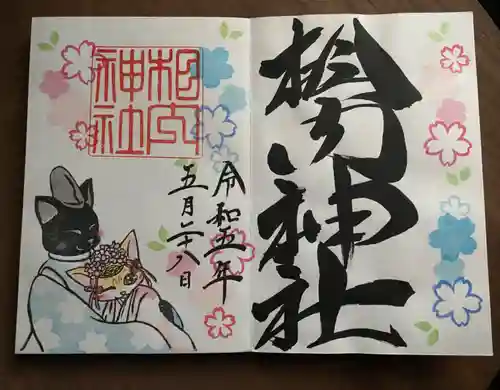 相内神社
令和五年
五月二十八日
相内
神社